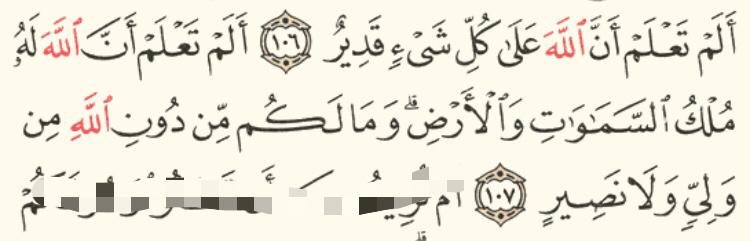 أَلَمْ تَعْلَمْ أَنَّ ٱللَّهَ عَلَىٰ كُلِّ شَىْءٍۢ قَدِيرٌ ١٠٦ أَلَمْ تَعْلَمْ أَنَّ ٱللَّهَ لَهُۥ
مُلْكُ ٱلسَّمَـٰوَٰتِ وَٱلْأَرْضِ ۗ وَمَا لَكُم مِّن دُونِ ٱللَّهِ مِن
وَلِىٍّۢ وَلَا نَصِيرٍ ١٠٧ أَمْ